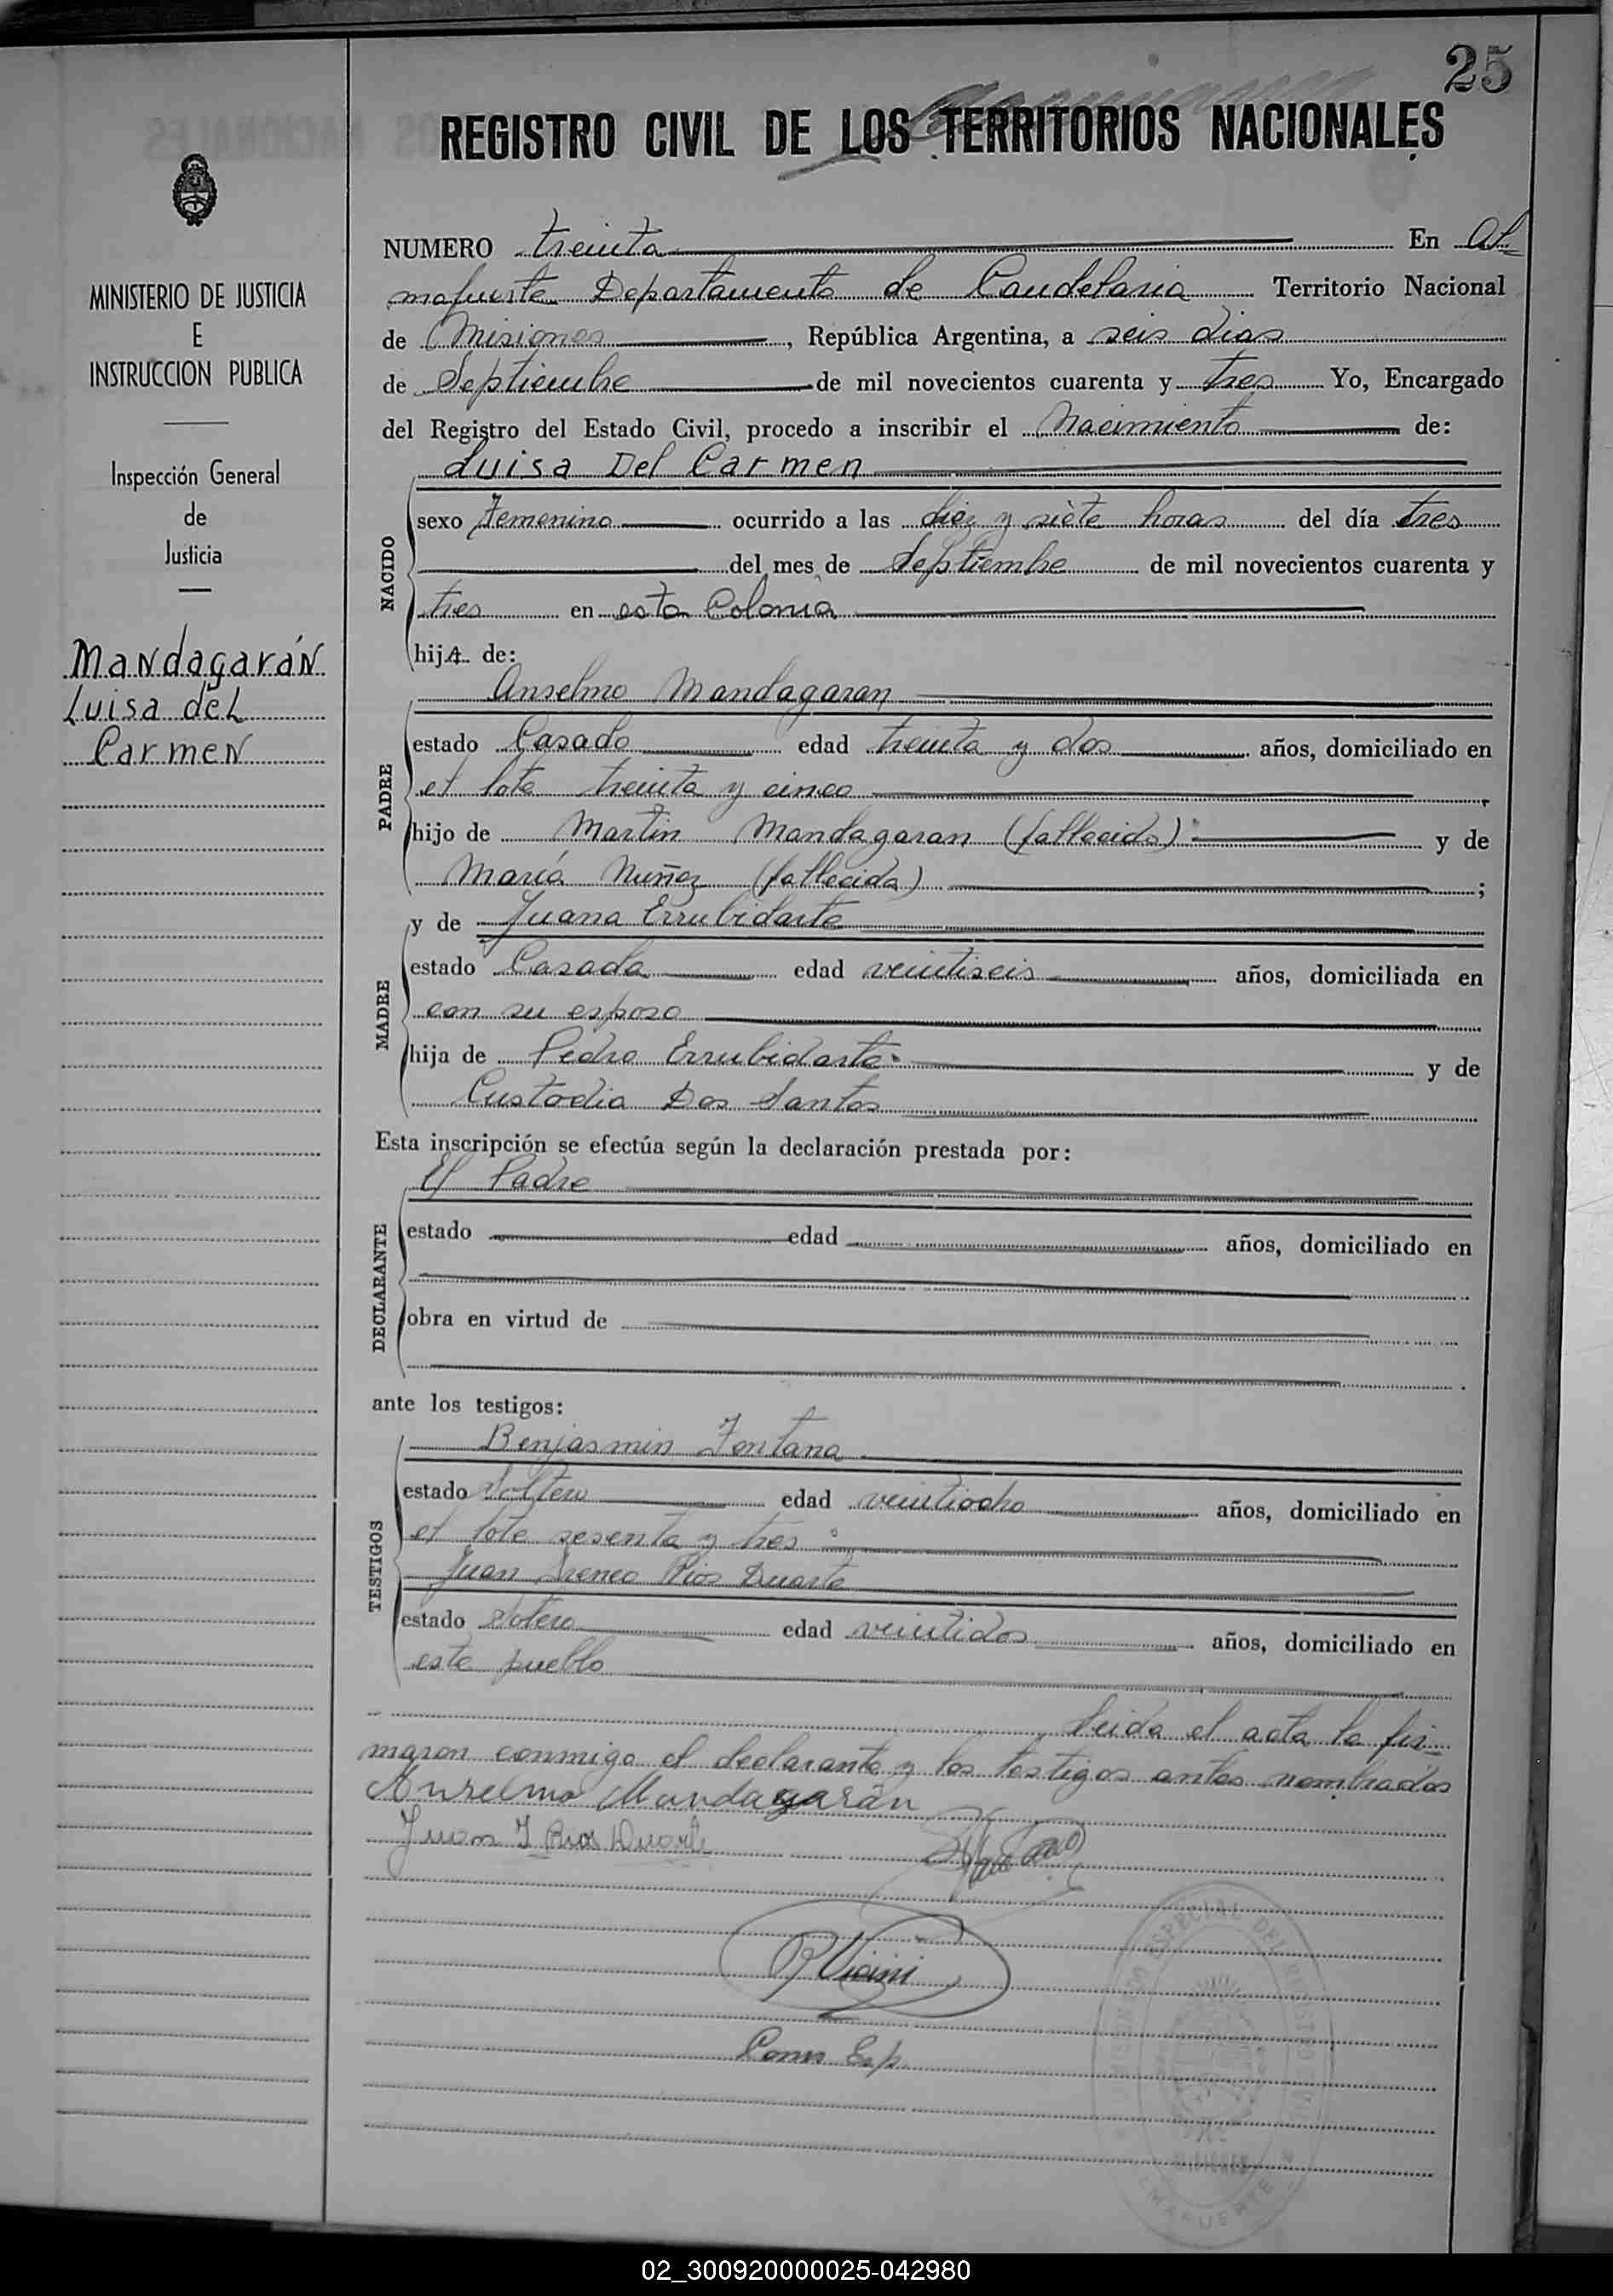 25
REGISTRO CIVIL DE LOS TERRITORIOS NACIONALES
MINISTERIO DE JUSTICIA
E
INSTRUCCION PUBLICA
Inspección General
de
Justicia
Mandagarán
Luisa del
Carmen
NUMERO treinta En Al-
mafuerte Departamento de Candelaria Territorio Nacional
de Misiones, República Argentina, a seis dias
de Septiembre de mil novecientos cuarenta y tres Yo, Encargado
del Registro del Estado Civil, procedo a inscribir el Nacimiento de:
Luisa Del Carmen
NACIDO
sexo Femenino ocurrido a las diez y siete horas del día tres
del mes de Septiembre de mil novecientos cuarenta y
tres en esta Colonia
hijA de:
Anselmo Mandagaran
PADRE
estado Casado edad treinta y dos años, domiciliado en
el lote treinta y cinco
hijo de Martin Mandagaran (fallecido) y de
María Nuñez (fallecida) ;
y de Juana Errubidarte
MADRE
estado Casada edad veintiseis años, domiciliada en
con su esposo
hija de Pedro Errubidarte y de
Custodia Dos Santos
Esta inscripción se efectúa según la declaración prestada por:
El Padre
DECLARANTE
estado edad años, domiciliado en
obra en virtud de
ante los testigos:
Benjasmin Fontana
TESTIGOS
estado Soltero edad veintiocho años, domiciliado en
el lote sesenta y tres
Juan Ireneo Rios Duarte
estado Solero edad veintidos años, domiciliado en
este pueblo
Leida el acta la fir-
maron conmigo el declarante y los testigos antes nombrados
Anselmo Mandagarán
Juan I Rios Duarte
R Vicini
Comis Esp.
ESPECIAL DEL REGISTRO CIVIL
MISIONES
ALMAFUERTE
02_300920000025-042980